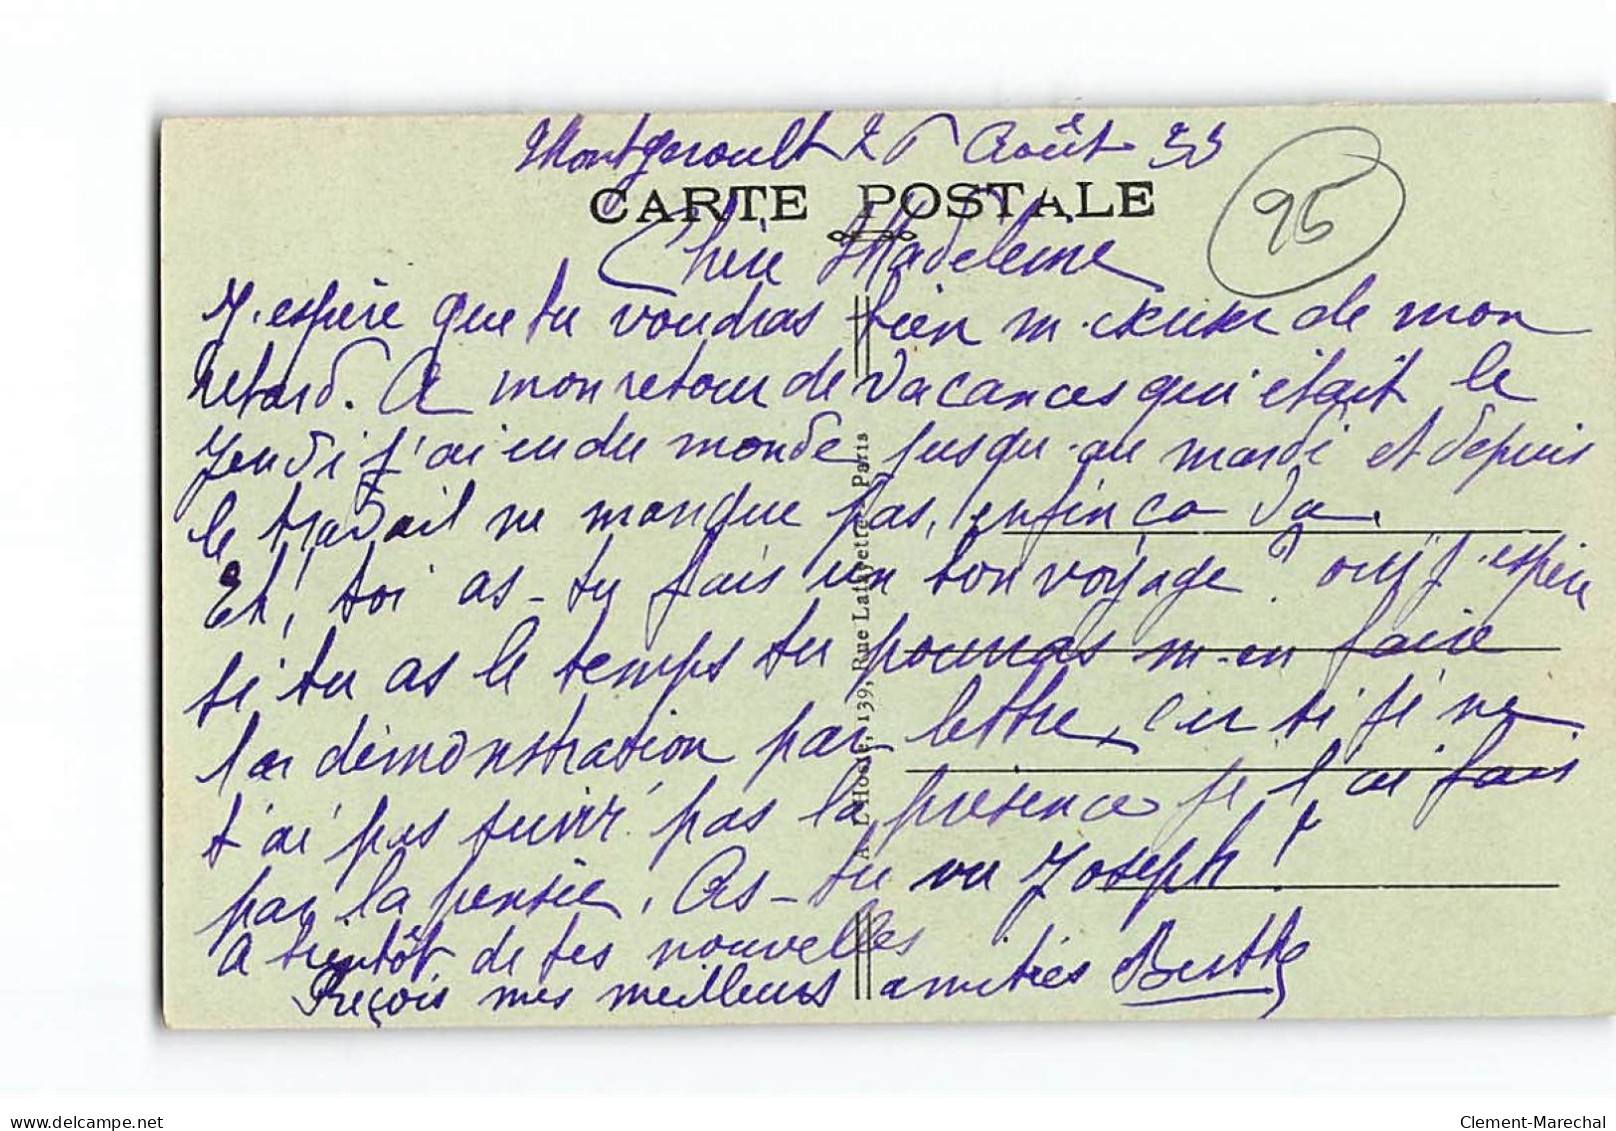 Montgeroult 26 Août 33
CARTE POSTALE
95
Chère Madeleine
J'espère que tu voudras bien m'excuser de mon
retard. A mon retour de vacances qui était le
jeudi j'ai eu du monde jusqu'au mardi et depuis
le travail ne manque pas, enfin ça va.
Et! toi as-tu fais un bon voyage? oui j'espère
si tu as le temps tu pourras m'en faire
la démonstration par lettre, car si je ne
t'ai pas suivi pas la présence je l'ai fais
par la pensée. As-tu vu Joseph!
A bientôt de tes nouvelles
Reçois mes meilleurs amitiés Berthe
A. L'Hoste, 139, Rue Lafayette - Paris
delcampe.net
Clement-Marechal